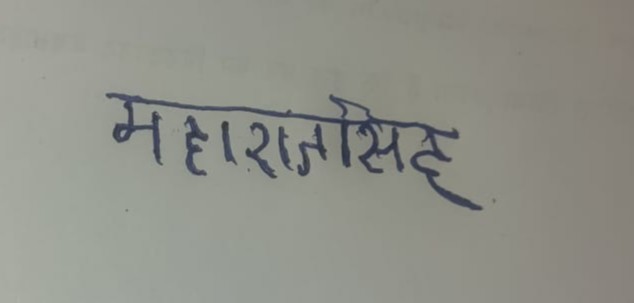 महाराजसिंह